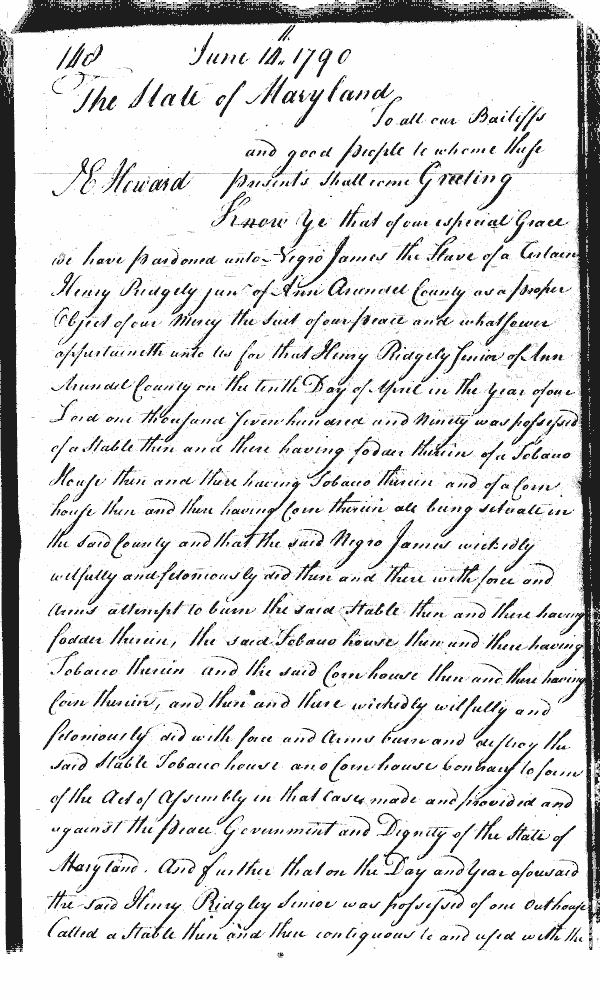 148 June 14th 1790
The State of Maryland
To all our Bailiffs
and good people to whome these
J E Howard presents shall come Greeting
Know Ye that of our especial Grace
we have pardoned unto Negro James the Slave of a Certain
Henry Ridgely junr of Ann Arundel County as a proper
Object of our Mercy the suit of our peace and whatsower
appertaineth unto us for that Henry Ridgely Senior of Ann
Arundel County on the tenth Day of April in the year of our
Lord one thousand seven hundred and Ninety was possessed
of a Stable then and there having fodder therein of a Tobaco
House then and there having Tobacco therein and of a Corn
house then and there having Corn therein all being situate in
the said County and that the said Negro James wickedly
wilfully and feloniously did then and there with force and
Arms attempt to burn the said Stable then and there having
fodder therein, the said Tobaco house then and there having
Tobacco therein and the said Corn house then and there having
Corn therein, and then and there wickedly wilfully and
feloniously did with force and Arms burn and destroy the
said Stable Tobacco house and Corn house contrary to form
of the Act of Assembly in that case made and provided and
against the peace Government and Dignity of the State of
Maryland. And further that on the Day and Year aforesaid
the said Henry Ridgley Senior was possessed of one Outhouse
Called a Stable then and there contiguous to and used with the